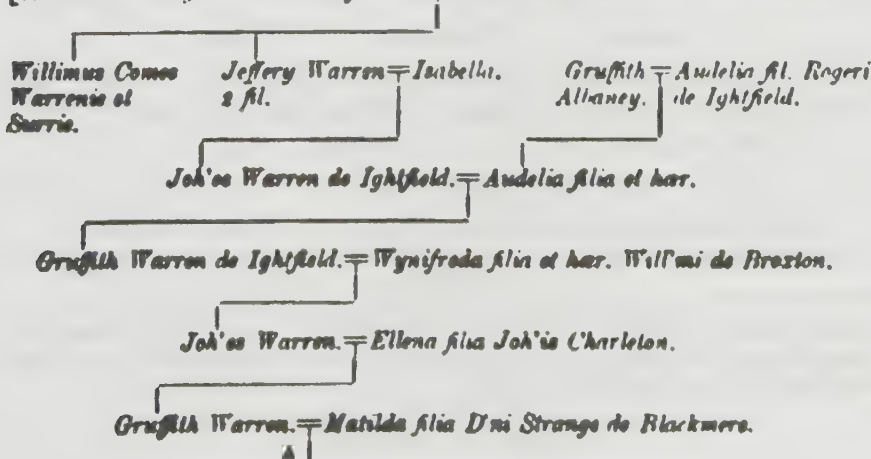 Willimus Comes Jeffery Warren = Isabella. Gruffith = Audelia fil. Rogeri
Warrenie et 2 fil. Albaney. de Ightfield.
Surrie.
Joh'es Warren de Ightfield. = Audelia filia et hær.
Gruffith Warren de Ightfield. = Wynifreda filia et hær. Will'mi de Broxton.
Joh'es Warren. = Ellena filia Joh'is Charleton.
Gruffith Warren. = Matilda filia D'ni Strange de Blackmere.
A